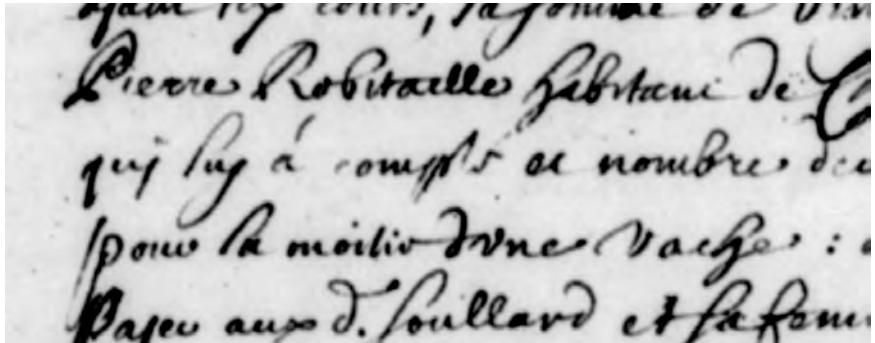 ayant lix cours, la somme de vin
Pierre Robitaille habitant de
qui luy à compté et nombré de
pour la moitie d'vne vache :
Payer aux d. Soullard et sa fem